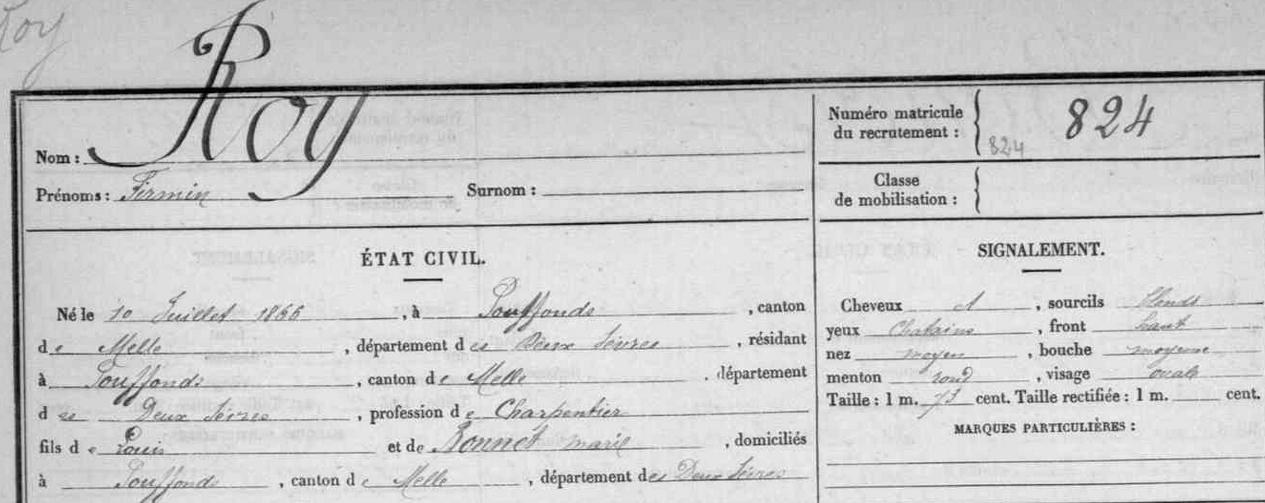 Roy
Roy
Nom :
Prénoms : Firmin Surnom :
Numéro matricule
du recrutement : 824
824
Classe
de mobilisation :
ÉTAT CIVIL.
Né le 10 Juillet 1866, à Pouffonds, canton
de Melle, département des Deux Sèvres, résidant
à Pouffonds, canton de Melle, département
des Deux Sèvres, profession de Charpentier
fils de Louis et de Bonnet marie, domiciliés
à Pouffonds, canton de Melle, département des Deux Sèvres
SIGNALEMENT.
Cheveux et, sourcils blonds
yeux Chatains, front haut
nez moyen, bouche moyenne
menton rond, visage ovale
Taille : 1 m. cent. Taille rectifiée : 1 m. cent.
MARQUES PARTICULIÈRES :